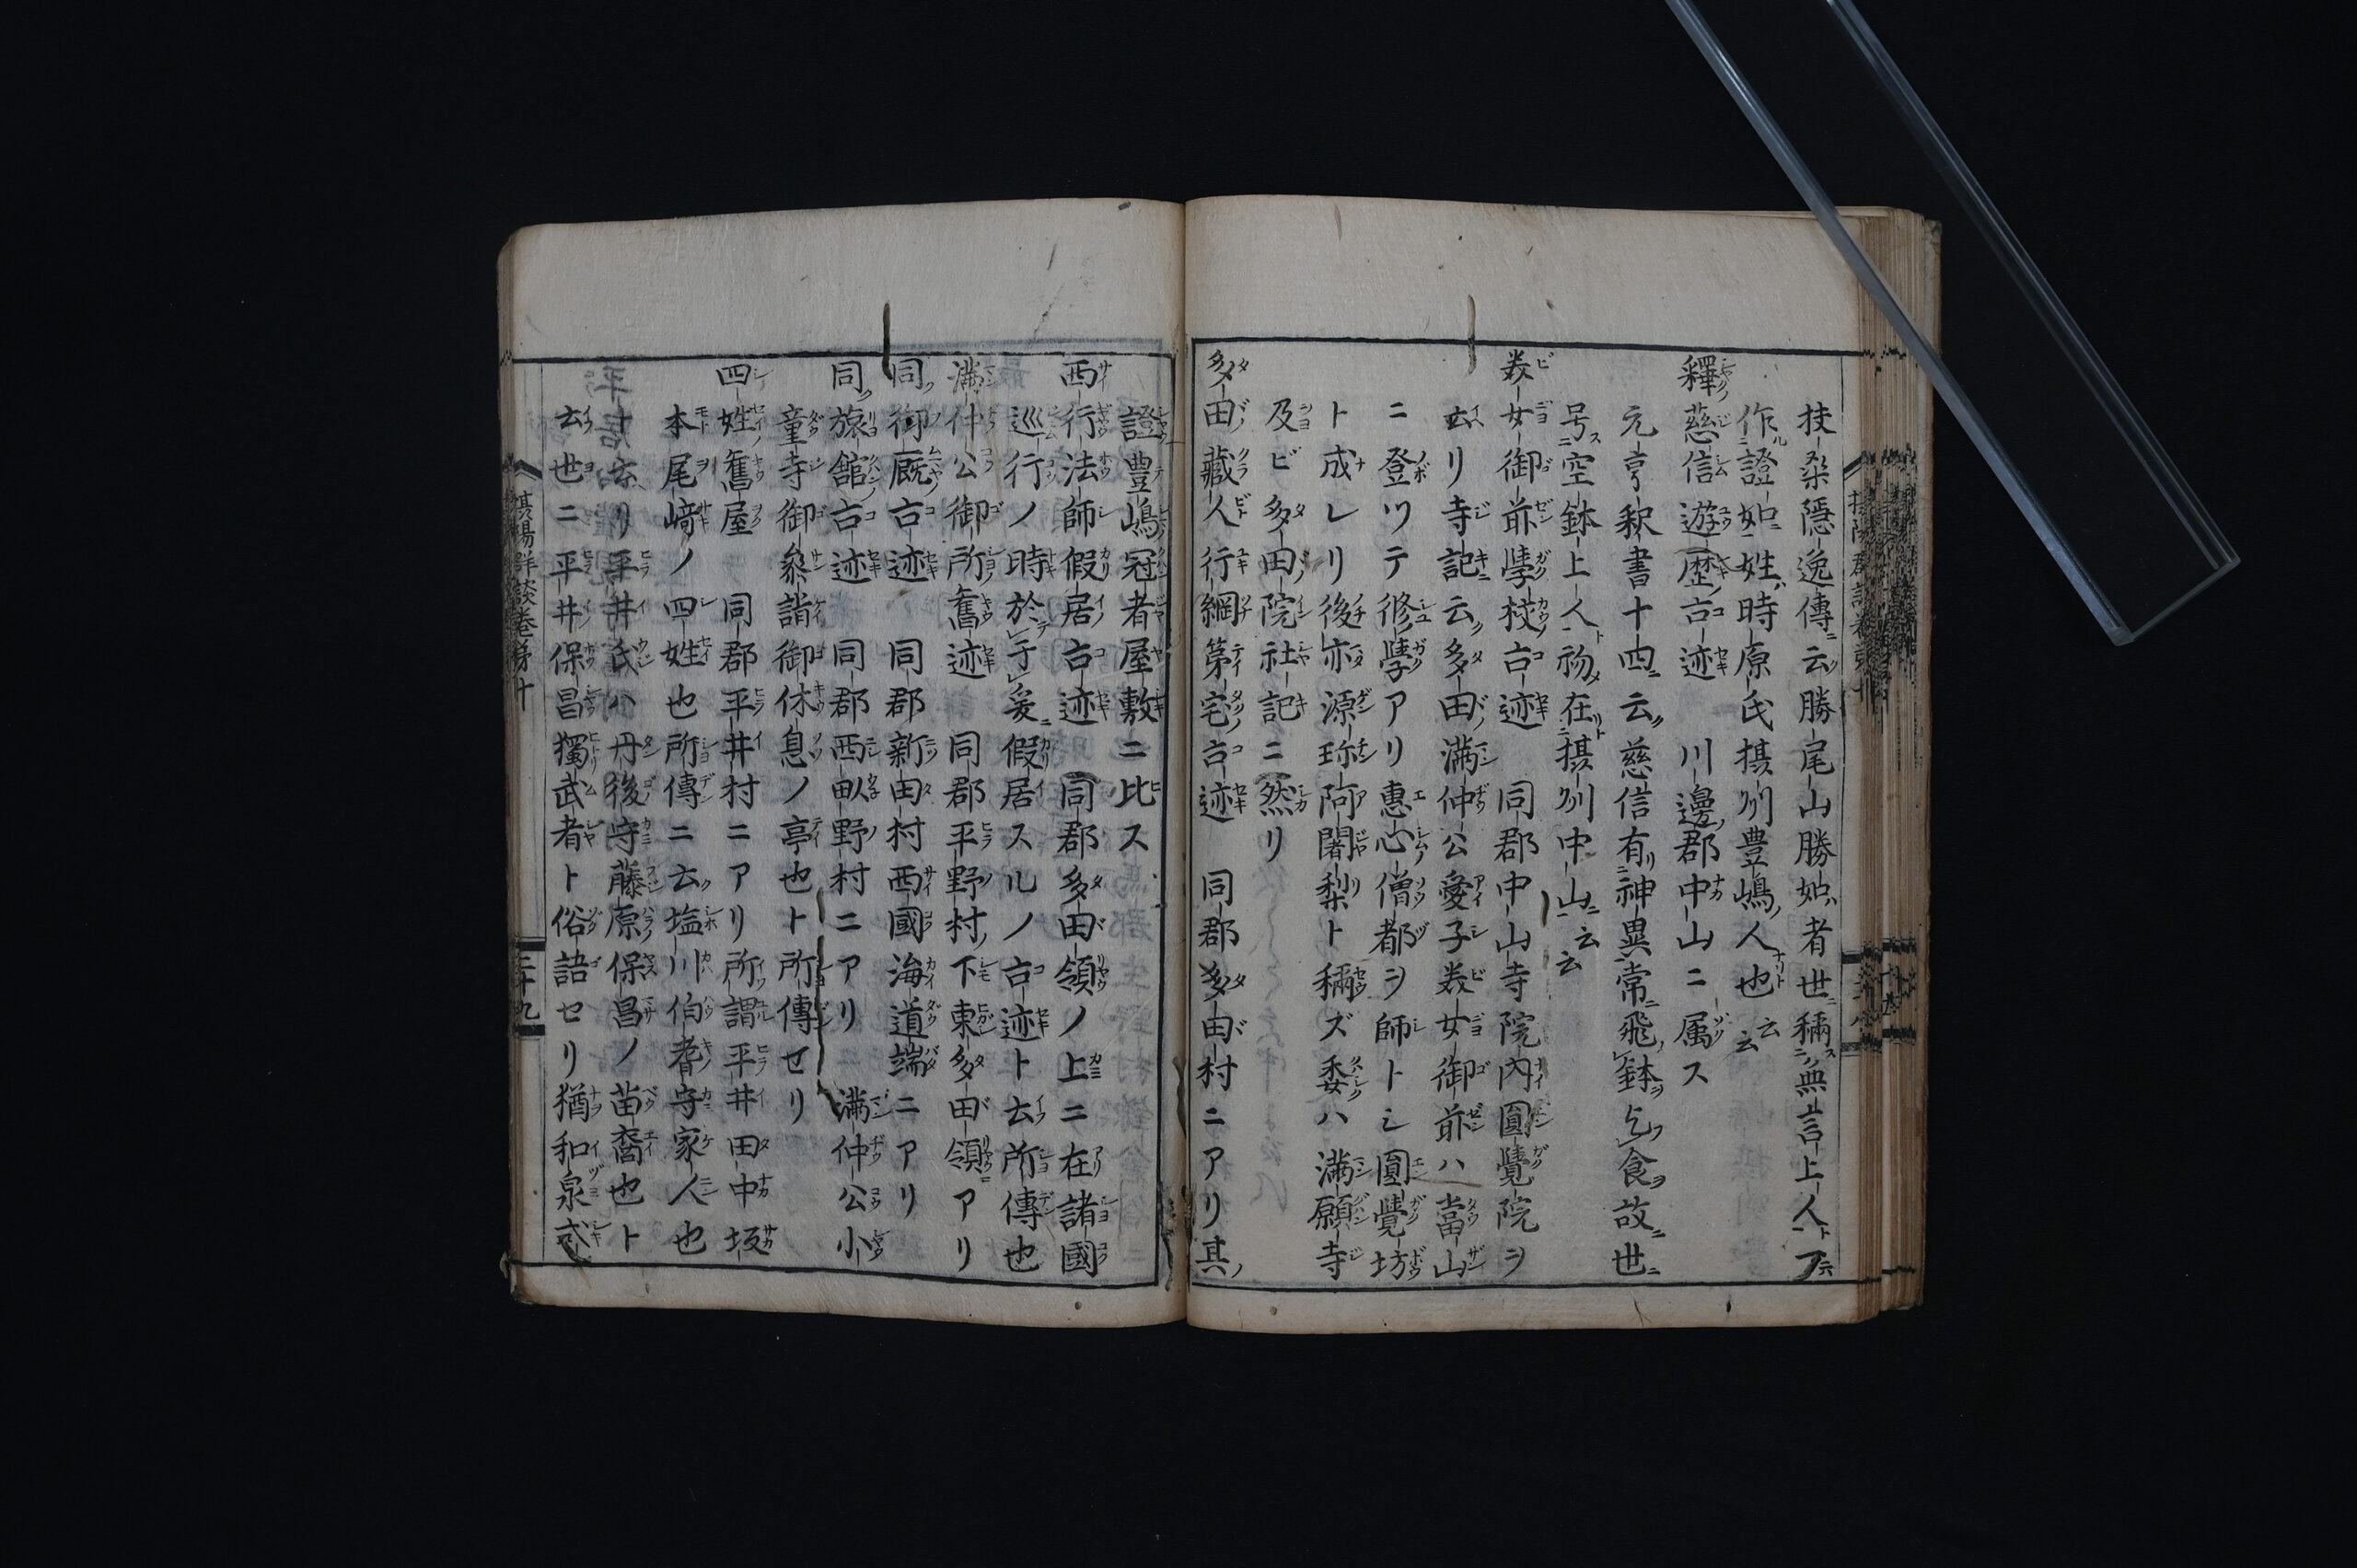 扶桑隠逸傳云勝尾山勝如者世稱無言上人ト
作證如姓時原氏摂州豊嶋人也云云
釋慈信遊歴古迹 川邊郡中山ニ属ス
元亨釈書十四云慈信有神異常飛鉢乞食故世
号空鉢上人初在摂州中山云云
美女御前學校古迹 同郡中山寺院内圓覺院ヲ
云リ寺記云多田満仲公愛子美女御前ハ當山
ニ登リテ修學アリ惠心僧都ヲ師トシ圓覺坊
ト成レリ後亦源珎阿闍梨ト稱ズ委ハ満願寺
及ビ多田院社記ニ然リ
多田藏人行綱第宅古迹 同郡多田村ニアリ其
證豊嶋冠者屋敷ニ比ス
西行法師假居古迹 同郡多田領ノ上ニ在諸國
巡行ノ時於于爰假居スルノ古迹ト云所傳也
満仲公御所舊迹 同郡平野村下東多田領アリ
同御厩古迹 同郡新田村西國海道端ニアリ
同旅舘古迹 同郡西畝野村ニアリ 満仲公小
童寺御参詣御休息ノ亭也ト所傳セリ
四姓舊屋 同郡平井村ニアリ所謂平井田中坂
本尾﨑ノ四姓也所傳ニ云塩川伯耆守家人也
ト云リ平井氏ハ丹後守藤原保昌ノ苗裔也ト
云世ニ平井保昌獨武者ト俗語セリ猶和泉式
摂陽群談巻第十
三十九